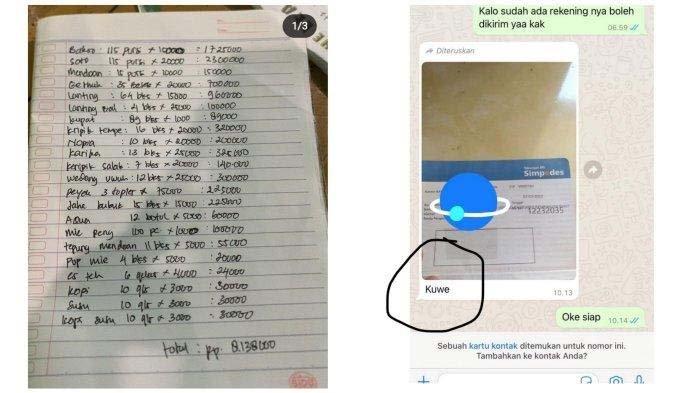 1/3
Bakso : 115 porsi x 15000 = 1725000
Soto 115 porsi x 20000 : 2300000
Mendoan : 15 porsi x 10000 : 150000
Gethuk : 35 x 20000 : 700000
Lanting : 64 bks x 15000 : 960000
Lanting 4 bks x 25000 : 100000
kupat : 89 bks x 1000 : 89000
kripik tempe : 16 bks x 20000 : 320000
Nopia : 10 bks x 20000 : 200000
Karika : 13 bks x 25000 : 325000
keripik salak : 7 bks x 20000 : 140.000
wedang uwuh : 12 bks x 25000 : 300000
peyek 3 toples x 75000 : 225000
Jahe bubuk 15 bks x 15000 : 225000
Aqua 12 botol x 5000 : 60000
mie 100 pc x 1000 : 100000
tepung mendoan 11 bks x 5000 : 55000
Pop mie 4 bks x 5000 : 20000
es teh 6 gelas x 4000 : 24000
kopi 10 gls x 3000 : 30000
Susu 10 gls x 3000 : 30000
kopi susu 10 gls x 3000 : 30000
total : Rp. 8.138.000
Kalo sudah ada rekening nya boleh
dikirim yaa kak
06.59
Diteruskan
Simpedes
12232035
Kuwe
10.13
Oke siap
10.14
Sebuah kartu kontak ditemukan untuk nomor ini.
Tambahkan ke kontak Anda?